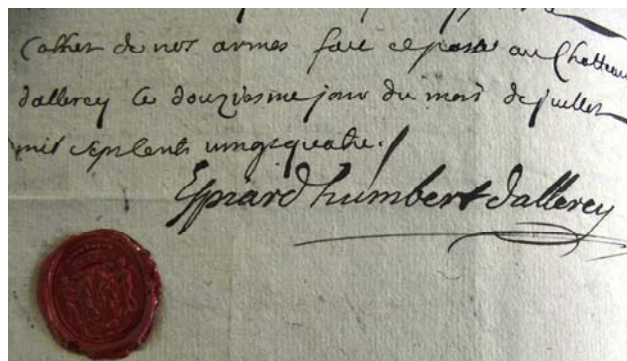 Cachet de nos armes fait et passé au Chatteau
dallerey Ce douziesme jour du mois de juillet
mil sept cents vingt quatre.
Humbert dallerey